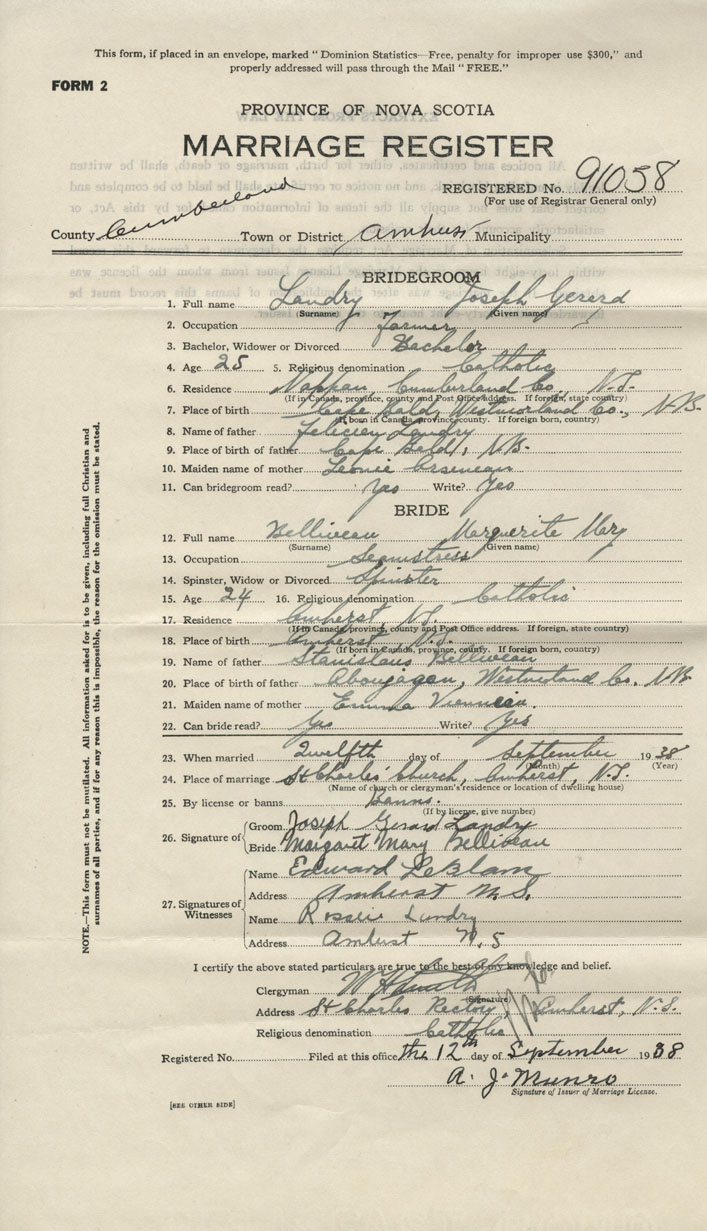 This form, if placed in an envelope, marked "Dominion Statistics—Free, penalty for improper use $300," and
properly addressed will pass through the Mail "FREE."
FORM 2
PROVINCE OF NOVA SCOTIA
MARRIAGE REGISTER
REGISTERED No. 91058
(For use of Registrar General only)
County Cumberland Town or District Amherst Municipality
BRIDEGROOM
1. Full name Landry Joseph Gererd
(Surname) (Given name)
2. Occupation Farmer
3. Bachelor, Widower or Divorced Bachelor
4. Age 25 5. Religious denomination Catholic
6. Residence Nappan, Cumberland Co., N.S.
(If in Canada, province, county and Post Office address. If foreign, state country)
7. Place of birth Cape Bald, Westmorland Co., N.B.
(If born in Canada, province, county. If foreign born, country)
8. Name of father Felicien Landry
9. Place of birth of father Cape Bald, N.B.
10. Maiden name of mother Leonie Arseneau
11. Can bridegroom read? Yes Write? Yes
BRIDE
12. Full name Belliveau Marguerite Mary
(Surname) (Given name)
13. Occupation Seamstress
14. Spinster, Widow or Divorced Spinster
15. Age 24 16. Religious denomination Catholic
17. Residence Amherst, N.S.
(If in Canada, province, county and Post Office address. If foreign, state country)
18. Place of birth Amherst, N.S.
(If born in Canada, province, county. If foreign born, country)
19. Name of father Stanislaus Belliveau
20. Place of birth of father Aboujagan, Westmorland Co. N.B.
21. Maiden name of mother Emma Vienneau
22. Can bride read? Yes Write? Yes
23. When married Twelfth day of September 1938
(Month) (Year)
24. Place of marriage St Charles' Church, Amherst, N.S.
(Name of church or clergyman's residence or location of dwelling house)
25. By license or banns Banns.
(If by license, give number)
26. Signature of
Groom Joseph Gerard Landry
Bride Margaret Mary Belliveau
27. Signatures of Witnesses
Name Edward LeBlanc
Address Amherst N.S.
Name Landry
Address Amherst N.S
I certify the above stated particulars are true to the best of my knowledge and belief.
Clergyman
(Signature)
Address St Charles Rectory, Amherst, N.S.
Religious denomination Catholic
Registered No. Filed at this office the 12th day of September 1938
A. J. Munro
Signature of Issuer of Marriage License.
[SEE OTHER SIDE]
NOTE.—This form must not be mutilated. All information asked for is to be given, including full Christian and
surnames of all parties, and if for any reason this is impossible, the reason for the omission must be stated.